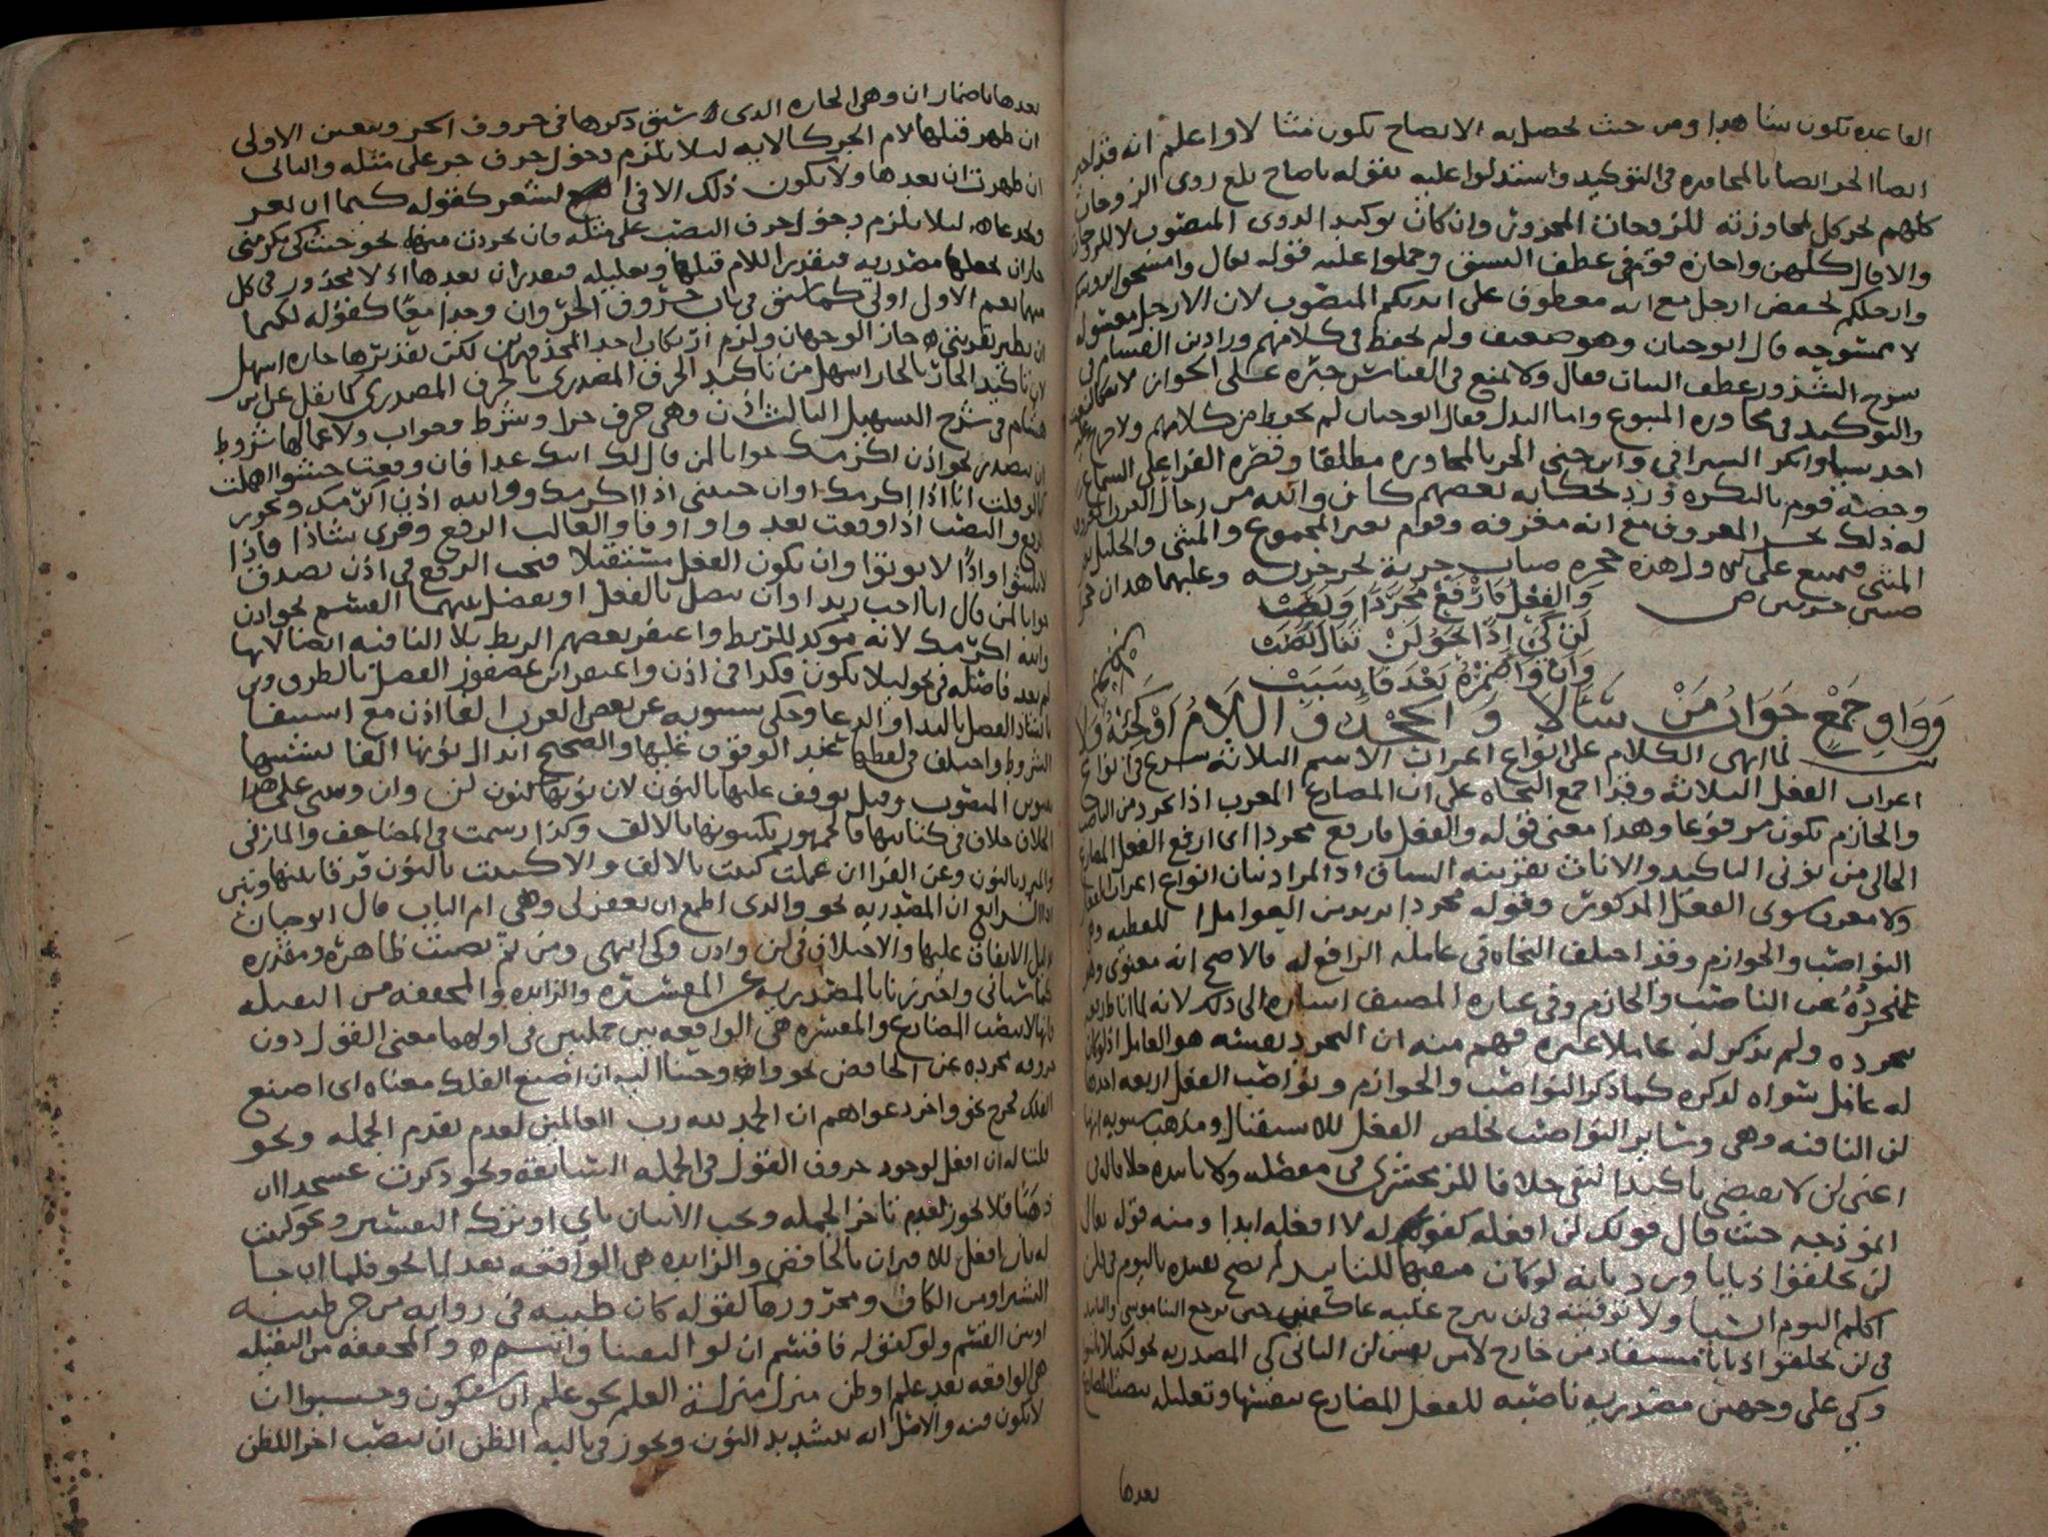 القاعده تكون شاهدا ومن حيث يحصل به الايضاح تكون مثالا واعلم انه قد
ايضا الجر ايضا بالمجاوره في التوكيد واستدلوا عليه بقوله ياصاح بلغ ذوي الزوجات
كلهم بجر كل لمجاورته للزوجات المجرور وان كان توكيد الذوي المنصوب لا للزوجات
والا قال كلهن واجازه قوم في عطف النسق وحملوا عليه قوله تعالى وامسحوا برؤسكم
وارجلكم بخفض ارجل مع انه معطوف على ايديكم المنصوب لان الارجل مغسوله
لا ممسوحه قال ابوحيان وهو ضعيف ولم يحفظ في كلامهم وزاد ابن هشام في
شرح الشذور عطف البيان فقال ولا يمتنع في القياس جره على الجوار
والتوكيد في مجاوره المتبوع واما البدل فقال ابوحيان لم يحفظ من كلامهم ولا
احد سبا وانكر السيرافي وابن جني الجر بالمجاوره مطلقا وقصره الفرا على السماع
وخصه قوم بالنكره ورد بحكايه بعضهم كان والله من رجال العرب المعروف
له ذلك بجر المعروف مع انه معرفه وقوم بغير المجموع والمثنى والخليل بغير
المثنى فمنع على الاول هذه جحره ضباب خربه بجر خربه وعليهما هذان جحرا
ضب خربين ص
والفعل فارفع مجردا ونصب
لن كي اذا نحو لن تنال لصب
وان واضمره بعد ما سبب
وواو جمع جواب من سالا والحذف اللام او كنه ولا
ش لما انهى الكلام على انواع اعراب الاسم الثلاثه شرع في انواع
اعراب الفعل الثلاثه وقد اجمع النحاه على ان المضارع المعرب اذا تجرد من الناصب
والجازم يكون مرفوعا وهذا معنى قوله والفعل فارفع مجردا اي ارفع الفعل المضارع
الخالي من نوني التاكيد والاناث بقرينه السياق اذ المراد بيان انواع اعراب الفعل
ولا معرب سوى الفعل المذكور وقوله مجردا يريد من العوامل اللفظيه وهي
النواصب والجوازم وقد اختلف النحاه في عامله الرافع له فالاصح انه معنوي وهو
تجرده عن الناصب والجازم وفي عباره المصنف اشاره الى ذلك لانه لما
تجرده ولم يذكر له عاملا غيره فهم منه ان التجرد بعينه هو العامل اذ لو كان
له عامل سواه لذكره كما ذكر النواصب والجوازم ونواصب الفعل اربعه احدها
لن النافيه وهي وسائر النواصب تخلص الفعل للاستقبال ومذهب سيبويه انها
اعني لن لا تقتضي تاكيد النفي خلافا للزمخشري في مفصله ولا تابيده خلافا له في
انموذجه حيث قال قولك لن افعله كقولك له لا افعله ابدا ومنه قوله تعالى
لن يخلقوا ذبابا ومن رد بانه لو كان منفيها للتابيد لم يصح تقييده باليوم في فلن
اكلم اليوم انسيا ولا توقيته في لن نبرح عليه عاكفين حتى يرجع الينا موسى والتابيد
في لن يخلقوا ذبابا مستفاد من خارج لا من نفس لن الثاني كي المصدريه نحو لكيلا
وكي على وجهين مصدريه ناصبه للفعل المضارع بنفسها وتعليليه ينصب المضارع
بعدها
بعدها باضمار ان وهي الجاره الذي سبق ذكرها في حروف الجر ويتعين الاولى
ان ظهر قبلها لام الجر كالايه ليلا يلزم دخول حرف جر على مثله والثاني
ان ظهرت ان بعدها ولا يكون ذلك الا في الشعر كقوله كيما ان تغر
وتخدعا ليلا يلزم دخول حرف النصب على مثله فان تجردت منهما نحو جئتك كي تكرمني
جاز ان تجعلها مصدريه فيقدر اللام قبلها وتعليليه فيقدر ان بعدها اذ لا محذور في كل
منهما نعم الاول اولى كما سبق في باب حروف الجر وان وجدا معا كقوله لكيما
ان يطير بقربتي جاز الوجهان ولزم ارتكاب احد المحذورين لكن تقديرها جاره اسهل
لان تاكيد الجار بالجار اسهل من تاكيد الحرف المصدري بالحرف المصدري كما نقل عن ابن
هشام في شرح التسهيل الثالث اذن وهي حرف جزا وشرط وجواب ولاعمالها شروط
ان تصدر نحو اذن اكرمك جوابا لمن قال لك اتيك غدا فان وقعت حشوا اهملت
كما لو قلت انا اذا اكرمك او ان جئتني اذا اكرمك ووالله اذن اكرمك ويجوز
الرفع والنصب اذا وقعت بعد واو او فا والغالب الرفع وقرئ شاذا فاذا
لا يلبثوا واذا لا يوتوا وان يكون الفعل مستقبلا فيجب الرفع في اذن تصدق
جوابا لمن قال انا احب زيدا وان يتصل بالفعل او يفصل بينهما القسم نحو اذن
والله اكرمك لانه موكد للربط واغتفر بعضهم الربط بلا النافيه ايضا لانها
لم تعد فاصله في نحو ليلا يكون فكذا في اذن واغتفر ابن عصفور الفصل بالظرف وابن
بابشاذ الفصل بالندا والدعا وحكى سيبويه عن بعض العرب الغا اذن مع استيفا
الشروط واختلف في لفظها عند الوقف عليها والصحيح ابدال نونها الفا تشبيها
بتنوين المنصوب وقيل يوقف عليها بالنون لان نونها كنون لن وان وينبني على هذا
الخلاف خلاف في كتابتها فالجمهور يكتبونها بالالف وكذا رسمت في المصاحف والمازني
والمبرد بالنون وعن الفرا ان عملت كتبت بالالف والا كتبت بالنون فرقا بينها وبين
اذا الرابع ان المصدريه نحو والذي اطمع ان يغفر لي وهي ام الباب قال ابوحيان
بدليل الاتفاق عليها والاختلاف في لن واذن وكي انتهى ومن ثم نصبت ظاهره ومقدره
كما سياتي واحترزنا بالمصدريه عن المفسره والزائده والمخففه من الثقيله
فانها لا تنصب المضارع والمفسره هي الواقعه بين جملتين في اولهما معنى القول دون
حروفه مجرده عن الخافض نحو واوحينا اليه ان اصنع الفلك معناه اي اصنع
الفلك فخرج نحو واخر دعواهم ان الحمد لله رب العالمين لعدم تقدم الجمله ونحو
قلت له ان افعل لوجود حروف القول في الجمله السابقه ونحو ذكرت عسجدا ان
ذهبا فلا يجوز لعدم تاخر الجمله ويجب الاتيان باي او ترك التفسير ونحو كتبت
له بان افعل للاقتران بالخافض والزايده هي الواقعه بعد لما نحو فلما ان جا
البشير او بين الكاف ومجرورها كقوله كان ظبيه في روايه من جر ظبيه
او بين القسم ولو كقوله فاقسم ان لو التقينا وانتم والمخففه من الثقيله
هي الواقعه بعد علم او ظن منزل منزله العلم نحو علم ان سيكون وحسبوا ان
لا تكون فتنه والاصل انه بتشديد النون ويجوز في تاليه الظن ان ينصب اجرا للظن